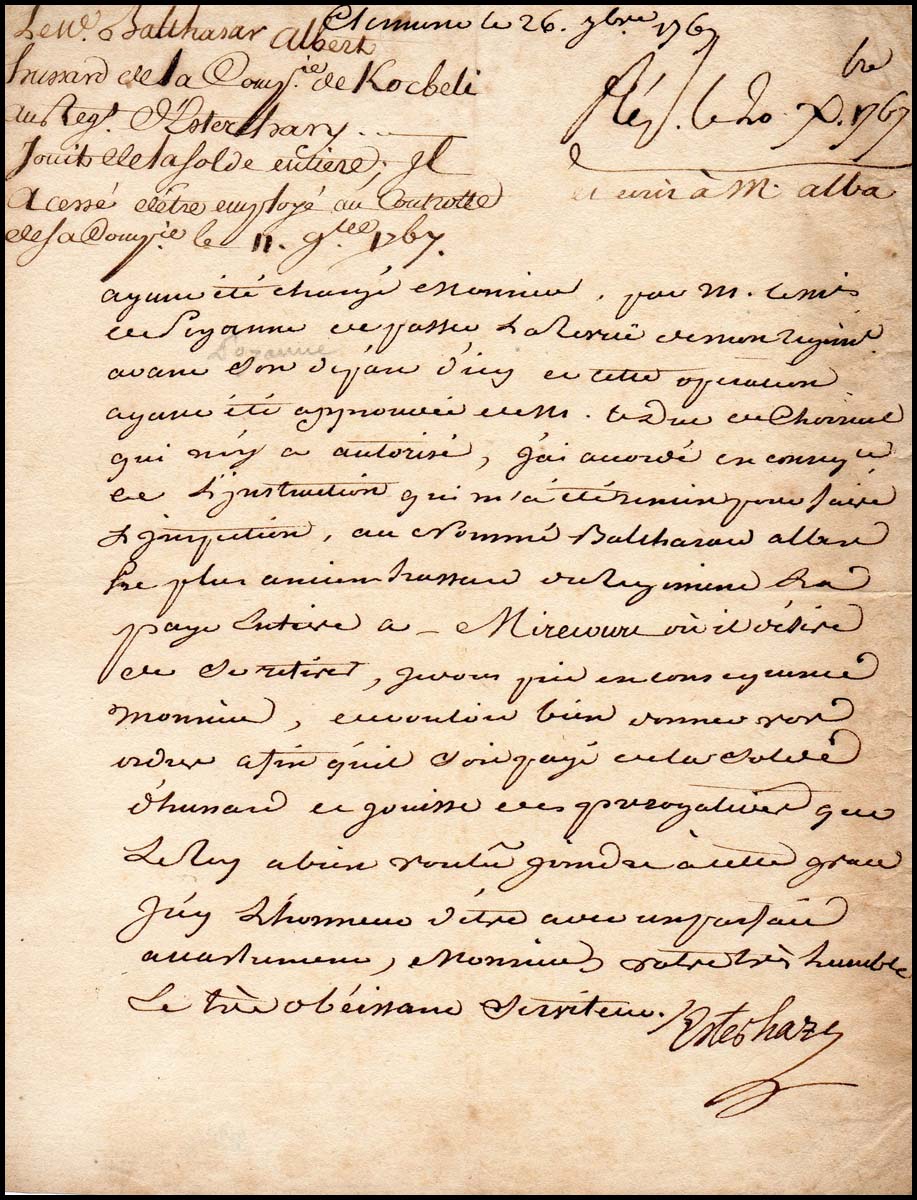 Le né. Balthasar Albert
hussard de la Comp.ie de Kocbeli
au Reg.t d'Esterhazy
Jouit de la solde entiere, Jl
A cessé d'etre employé au Controlle
de sa Comp.ie le 11. 9bre 1767.
le 26. 9bre 1767
Rép. le 20 Xbre. 1767
et ecrir à M. alba
ayant été chargé Monsieur, par M. le Mis
de Poyanne de passer La Revuë de mon Regimt.
Poyanne
avant Son départ d'icy et cette operation
ayant été approuvée de M. le Duc de Choiseul
qui m'y a autorisé, j'ai accordé en conseqce
de L'jnstruction qui m'a été remise pour faire
L'jnspection, au Nommé Balthasar albert
Le plus ancien hussard du Regiment La
paye Entiere a - Mirecourt où il désire
de Se retirer, je vous prie en consequence
Monsieur, de vouloir bien donner vos
ordres afin qu'il Soit payé de la Solde
d'hussard et jouisse des prerogatives que
Le Roy a bien voulu joindre à cette grace
J'ay L'honneur d'être avec un parfait
attachement, Monsieur, votre très humble
Et très obéissant Serviteur. Esterhazy